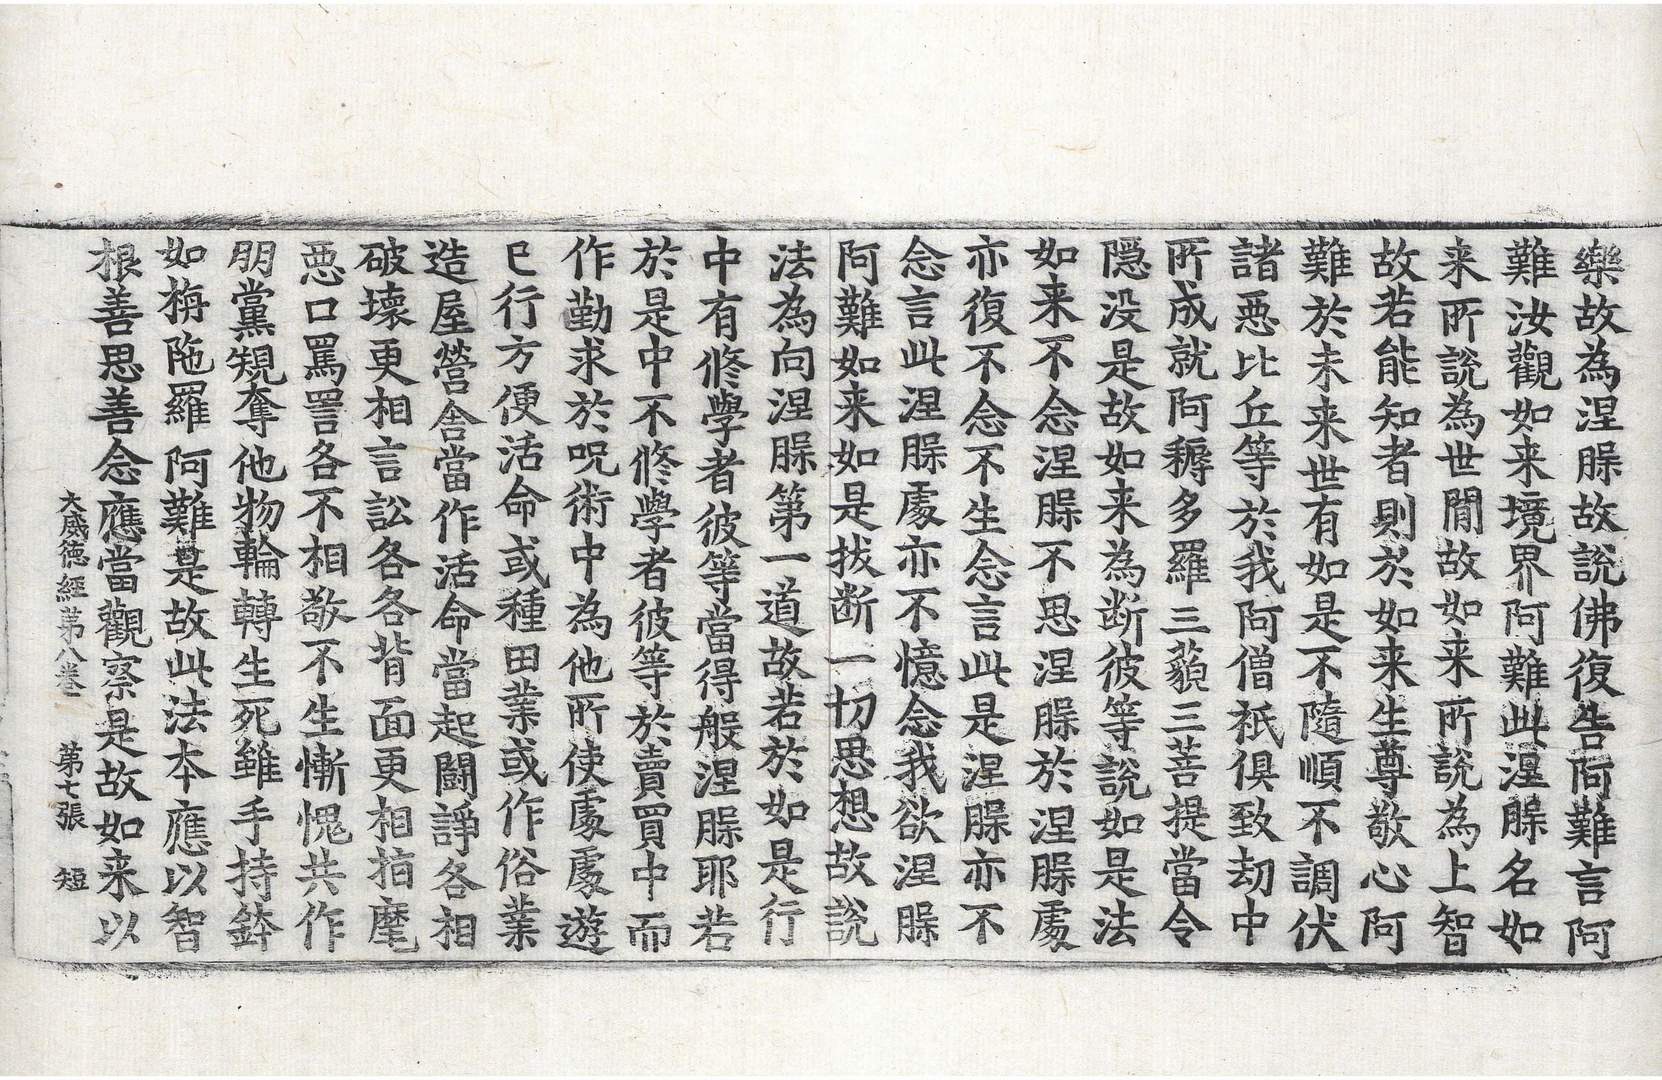 樂故為涅槃故說佛復告阿難言阿
難汝觀如来境界阿難此涅槃名如
来所說為世間故如来所說為上智
故若能知者則於如来生尊敬心阿
難於未来世有如是不隨順不調伏
諸惡比丘等於我阿僧祇俱致劫中
所成就阿耨多羅三藐三菩提當令
隱没是故如来為断彼等說如是法
如来不念涅槃不思涅槃於涅槃處
亦復不念不生念言此是涅槃亦不
念言此涅槃處亦不憶念我欲涅槃
阿難如来如是拔断一切思想故說
法為向涅槃第一道故若於如是行
中有修學者彼等當得般涅槃耶若
於是中不修學者彼等於賣買中而
作勤求於呪術中為他所使處處遊
已行方便活命或種田業或作俗業
造屋營舍當作活命當起鬪諍各相
破壞更相言訟各各背面更相指麾
惡口罵詈各不相敬不生慚愧共作
朋黨規奪他物輪轉生死雖手持鉢
如栴陁羅阿難是故此法本應以智
根善思善念應當觀察是故如来以
大威德經第八卷 第七張 短